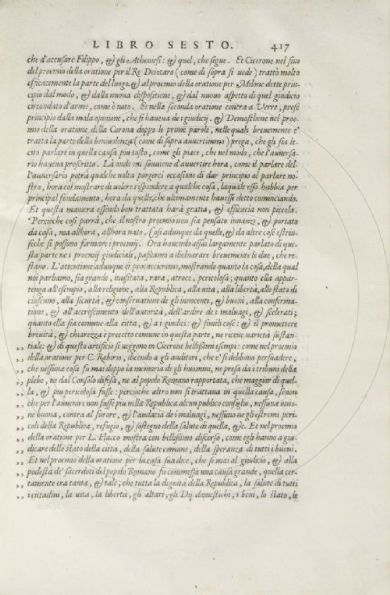 LIBRO SESTO. 417
che d'accusare Filippo, & gli Atheniesi: & quel, che segue. Et Cicerone nel fine
del proemio della oratione per il Re Deiotaro (come di sopra si uede) trattò molto
efficacemente la parte del luogo, & al proemio della oratione per Milone diede prin-
cipio dal modo, & dalla nuova dispositione, & dal nuovo aspetto di quel giudicio
circondato d'arme, come è noto. Et nella seconda oratione contra a Verre, prese
principio dalla mala opinione, che si haueua de i giudicij. & Demosthene nel proe-
mio della oratione, della Corona doppo le prime parole, nelle quali brevemente è
tratta la parte della beneuolenza (come di sopra auuertimmo) prega, che gli sia le-
cito parlare in quella causa piu tosto, come gli piace, che nel modo, che l'auuersa-
rio haueua proscritto. Là onde mi souuiene d'auuertire hora, come il parlare del-
l'auuersario potrà qualche uolta porgerci occasion di dar principio al parlare no-
stro, hora col mostrare di uolere rispondere a qualche cosa, laquale essi habbia per
principal fondamento, hora da quelle, che ultimamente hauesse detto cominciando.
Et questa maniera essendo ben trattata harà gratia, & efficacia non piccola.
Percioche così parrà, che il nostro proemio non sia pensato inanzi, & portato
da casa, ma allhora, allhora nato. Cosi adunque da quelle, & da altre cose estrin-
seche si possono formare i proemij. Ora hauendo assai largamente parlato di que-
sta parte ne i proemij giudiciali, passiamo a dichiarare brevemente le due, che re-
stano. L'attentione adunque si procaccieremo, mostrando quanto la cosa, della qual
noi parliamo, sia grande, inusitata, rara, atroce, pericolosa; quanto ella appar-
tenga all'esempio, alla religione, alla Republica, alla uita, alla libertà, allo stato di
ciascuno, alla sicurtà, & conseruatione de gli innocenti, & buoni, alla conserma-
tione, & all'accrescimento dell'autorità, dell'ardire de i maluagi, & scelerati;
quanto ella sia comune alla città, & a i giudici: & simili cose: & il promettere
breuità, & chiarezza è precetto comune in questa parte, ne riceue uarietà sustan-
tiale: & di questo artificio si ueggono in Cicerone bellissimi esempi: come nel proemio
della oratione per C. Rabirio, dicendo a gli auditori, che e' si debbono persuadere,
che nissuna cosa fu mai doppo la memoria de gli huomini, ne presa da i tribuni della
plebe, ne dal Consolo difesa, ne al popolo Romano rapportata, che maggior di quel-
la, & piu pericolosa fusse: percioche altro non si trattaua in quella causa, senon
che per l'auuenire non fusse piu nella Republica alcun publico consiglio, nessuna unio-
ne buona, contra al furore, & l'audacia de i maluagi, nessuno ne gli estremi peri-
coli della Republica, refugio, & sostegno della salute di quella, &c. Et nel proemio
della oratione per L. Flacco mostra con bellissimo discorso, come egli hanno a giu-
dicare dello stato della città, della salute comune, della speranza di tutti i buoni.
Et nel proemio della oratione per la casa sua dice, che se mai al giudicio, & alla
podestà de' sacerdoti del popolo Romano fu commessa una causa grande, quella cer-
tamente era tanta, & tale; che tutta la degnità della Republica, la salute di tutti
i cittadini, la uita, la libertà, gli altari, gli Dij domestichi, i beni, lo stato, le